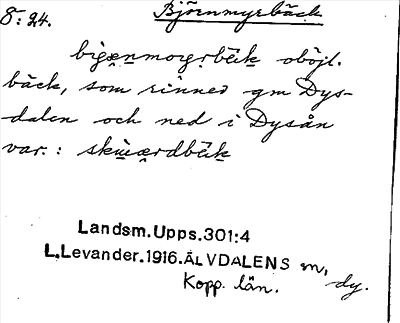 8:24. Björnmyrbäck
oböjl.
bäck, som rinner gm Dys-
dalen och ned i Dysån
var.:
Landsm.Upps.301:4
L.Levander.1916.ÄLVDALENS sn,
Kopp. län. dy.